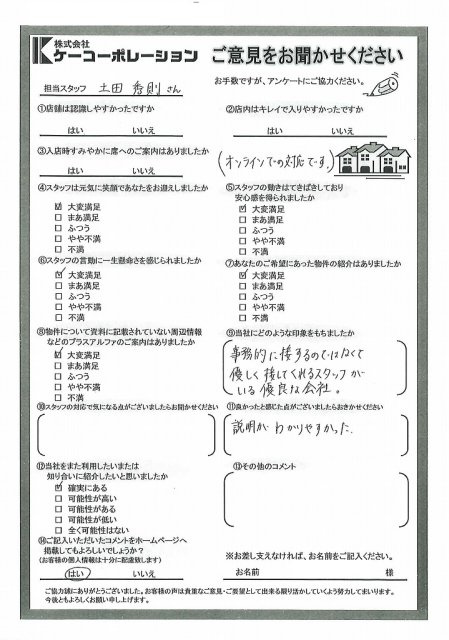 株式会社
ケーコーポレーション
ご意見をお聞かせください
担当スタッフ 土田 秀則 さん
お手数ですが、アンケートにご協力ください。
①店舗は認識しやすかったですか
はい いいえ
②店内はキレイで入りやすかったですか
はい いいえ
③入店時すみやかに席へのご案内はありましたか
はい いいえ
(オンラインでの対応です。)
④スタッフは元気に笑顔であなたをお迎えしましたか
☑ 大変満足
□ まあ満足
□ ふつう
□ やや不満
□ 不満
⑤スタッフの動きはてきぱきしており
安心感を得られましたか
☑ 大変満足
□ まあ満足
□ ふつう
□ やや不満
□ 不満
⑥スタッフの言動に一生懸命さを感じられましたか
☑ 大変満足
□ まあ満足
□ ふつう
□ やや不満
□ 不満
⑦あなたのご希望にあった物件の紹介はありましたか
☑ 大変満足
□ まあ満足
□ ふつう
□ やや不満
□ 不満
⑧物件について資料に記載されていない周辺情報
などのプラスアルファのご案内はありましたか
☑ 大変満足
□ まあ満足
□ ふつう
□ やや不満
□ 不満
⑨当社にどのような印象をもちましたか
事務的に接するのではなくて
優しく接してくれるスタッフが
いる優良な会社。
⑩スタッフの対応で気になる点がございましたらお聞かせください
⑪良かったと感じた点がございましたらおきかせください
説明がわかりやすかった
⑫当社をまた利用したいまたは
知り合いに紹介したいと思いましたか
☑ 確実にある
□ 可能性が高い
□ 可能性がある
□ 可能性が低い
□ 全く可能性はない
⑬その他のコメント
⑭ご記入いただいたコメントをホームページへ
掲載してもよろしいでしょうか?
(お客様の個人情報は十分に配慮致します)
はい いいえ
※お差し支えなければ、お名前をご記入ください。
お名前 様
ご協力誠にありがとうございました。お客様の声は貴重なご意見・ご要望として出来る限り活かしていくよう努力してまいります。
今後ともよろしくお願い申し上げます。